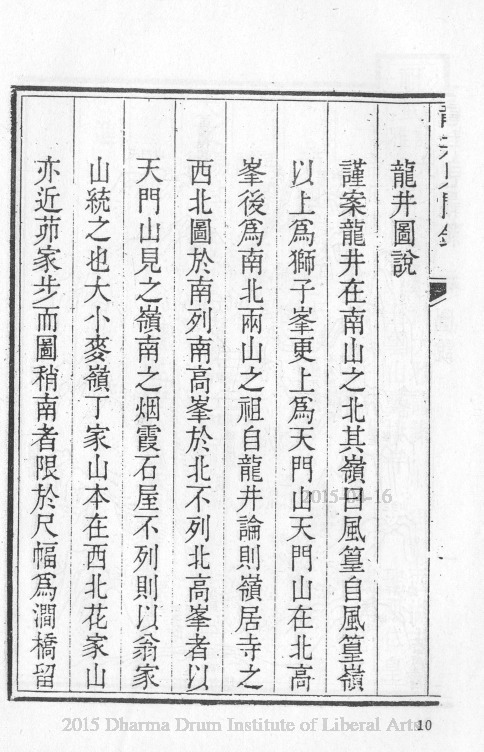 龍井見聞錄
龍井圖說
謹案龍井在南山之北其嶺曰風篁自風篁嶺
以上爲獅子峯更上爲天門山天門山在北高
峯後爲南北兩山之祖自龍井論則嶺居寺之
西北圖於南列南高峯於北不列北高峯者以
天門山見之嶺南之烟霞石屋不列則以翁家
山統之也大小麥嶺丁家山本在西北花家山
亦近茆家步而圖稍南者限於尺幅爲澗橋留
2015-04-16
2015 Dharma Drum Institute of Liberal Arts
10